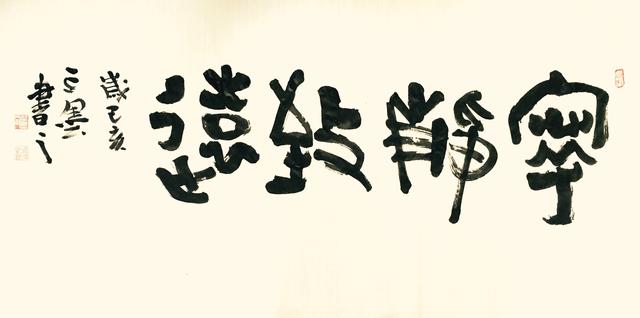 寧靜致遠
歲己亥
三墨
書之